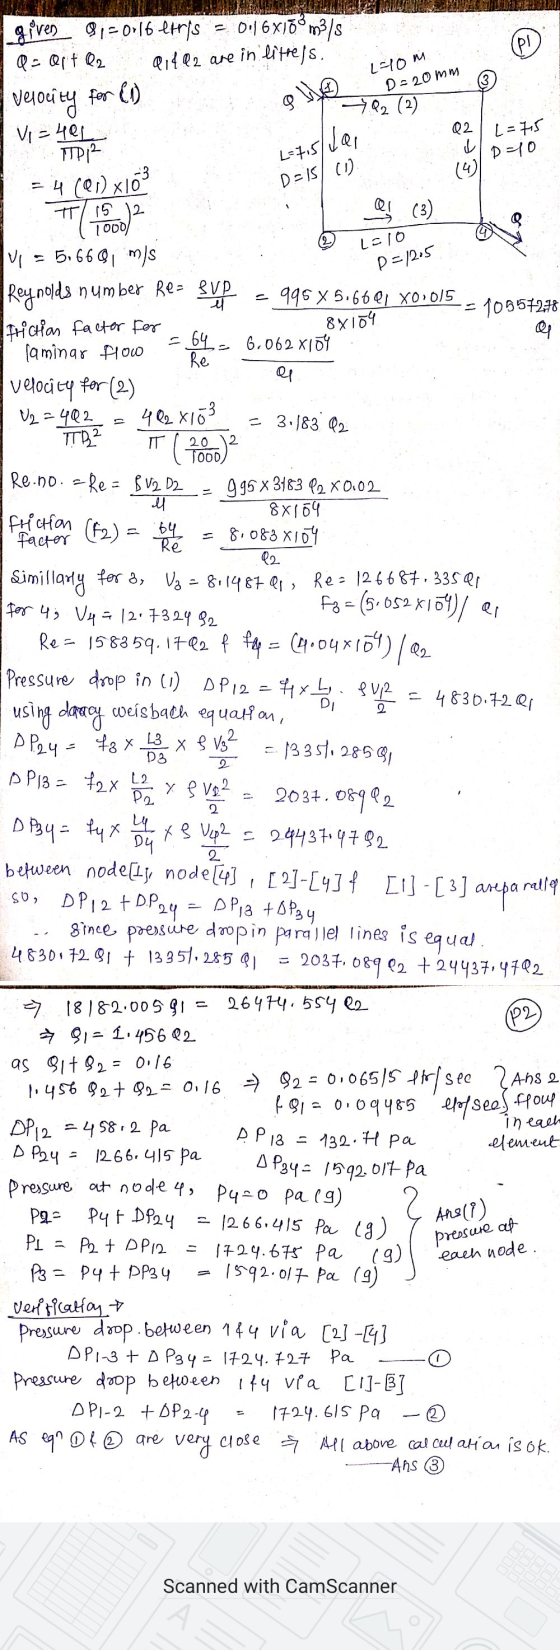 given Q1 = 0.16 ltr/s = 0.16×10⁻³ m³/s
P1
Q = Q1 + Q2   Q1 & Q2 are in litre/s.
L=10 M
D=20mm
1
3
Q
→ Q2 (2)
L=7.5
D=15
↓ Q1
(1)
Q2
↓
(4)
L=7.5
D=10
Q1
→ (3)
2
4
Q
L=10
D=12.5
Velocity for (1)
V1 = 4Q1 / πD1²
= 4 (Q1) ×10⁻³ / π(15/1000)²
V1 = 5.66Q1 m/s
Reynolds number Re = ρVD/μ = 995 × 5.66Q1 × 0.015 / 8×10⁻⁴ = 105572.78 Q1
Friction Factor For
laminar flow = 64/Re = 6.062×10⁻⁴ / Q1
Velocity for (2)
V2 = 4Q2/πD2² = 4Q2×10⁻³ / π(20/1000)² = 3.183 Q2
Re.no. = Re = ρV2D2/μ = 995×3183 Q2×0.02 / 8×10⁻⁴
Friction
Factor (F2) = 64/Re = 8.083×10⁻⁴ / Q2
Simillarly for 3, V3 = 8.1487Q1, Re = 126687.335Q1
F3 = (5.052×10⁻⁴)/Q1
for 4, V4 = 12.7324 Q2
Re = 158359.17Q2 & f4 = (4.04×10⁻⁴)/Q2
Pressure drop in (1) ΔP12 = f1 × L1/D1 . ρV1²/2 = 4830.72Q1
using darcy weisbach equation,
ΔP24 = f3 × L3/D3 × ρV3²/2 = 13351.285Q1
ΔP13 = f2 × L2/D2 × ρV2²/2 = 2037.089Q2
ΔP34 = f4 × L4/D4 × ρV4²/2 = 24437.47Q2
between node[1], node[4], [2]-[4] & [1]-[3] are parallel
so, ΔP12 + ΔP24 = ΔP13 + ΔP34
∴ since pressure drop in parallel lines is equal.
4830.72Q1 + 13351.285Q1 = 2037.089Q2 + 24437.47Q2
⇒ 18182.005Q1 = 26474.554Q2
P2
⇒ Q1 = 1.456Q2
as Q1+Q2 = 0.16
1.456 Q2 + Q2 = 0.16 ⇒ Q2 = 0.06515 ltr/sec
& Q1 = 0.09485 ltr/sec
Ans 2
flow
in each
element
ΔP12 = 458.2 Pa   ΔP13 = 132.71 Pa
ΔP24 = 1266.415 Pa   ΔP34 = 1592.017 Pa
Pressure at node 4, P4 = 0 Pa (g)
P2 = P4 + DP24 = 1266.415 Pa (g)
P1 = P2 + DP12 = 1724.675 Pa (g)
P3 = P4 + DP34 = 1592.017 Pa (g)
Ans(1)
pressure at
each node.
Verification →
Pressure drop between 1&4 via [2]-[4]
ΔP1-3 + ΔP34 = 1724.727 Pa — ①
Pressure drop between 1&4 via [1]-[3]
ΔP1-2 + ΔP2-4 = 1724.615 Pa — ②
As eqn ① & ② are very close ⇒ All above calculation is ok.
— Ans ③
Scanned with CamScanner